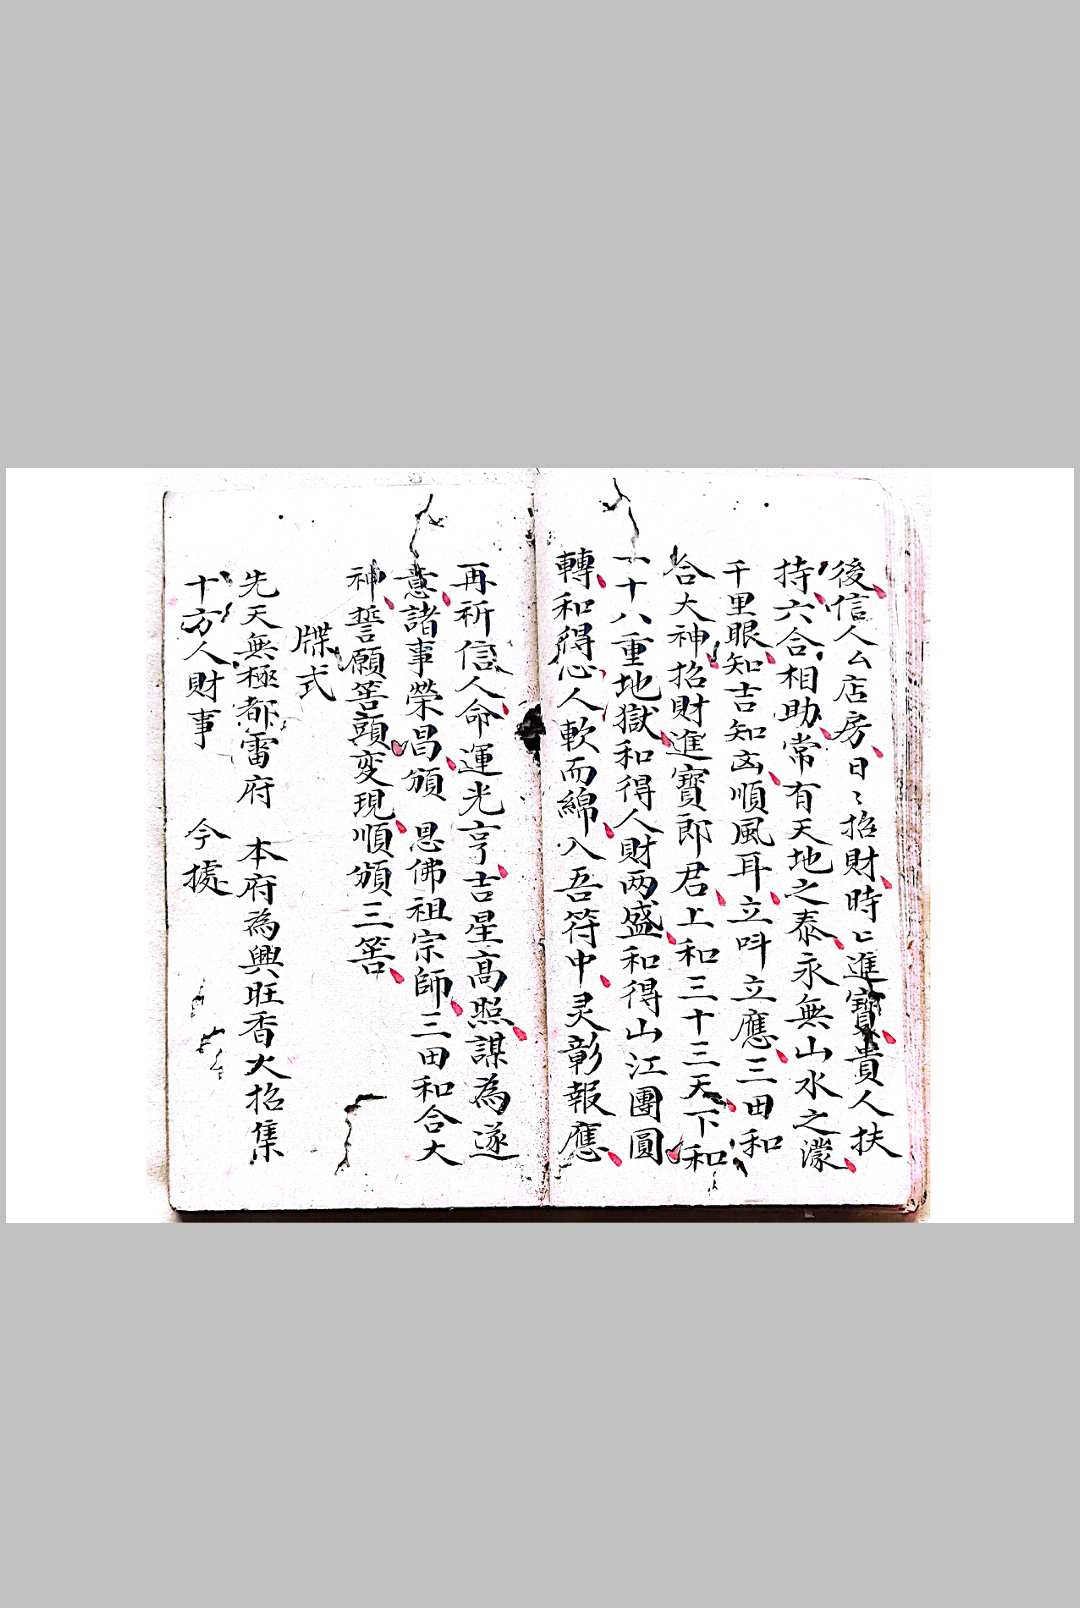 後信人厶店房日〻招財時〻進寶貴人扶
持六合相助常有天地之泰永無山水之濛
千里眼知吉知凶順風耳立呌立應三田和
合大神招財進寶郎君上和三十三天下和
一十八重地獄和得人財两盛和得山江團圓
轉和得心人軟而綿入吾符中灵彰報應
再祈信人命運光亨吉星高照謀為遂
意諸事榮昌頒 恩佛祖宗師三田和合大
神誓願筶頭变現順頒三筶
牒式
先天無極都雷府 本府為興旺香火招集
十方人財事 今據